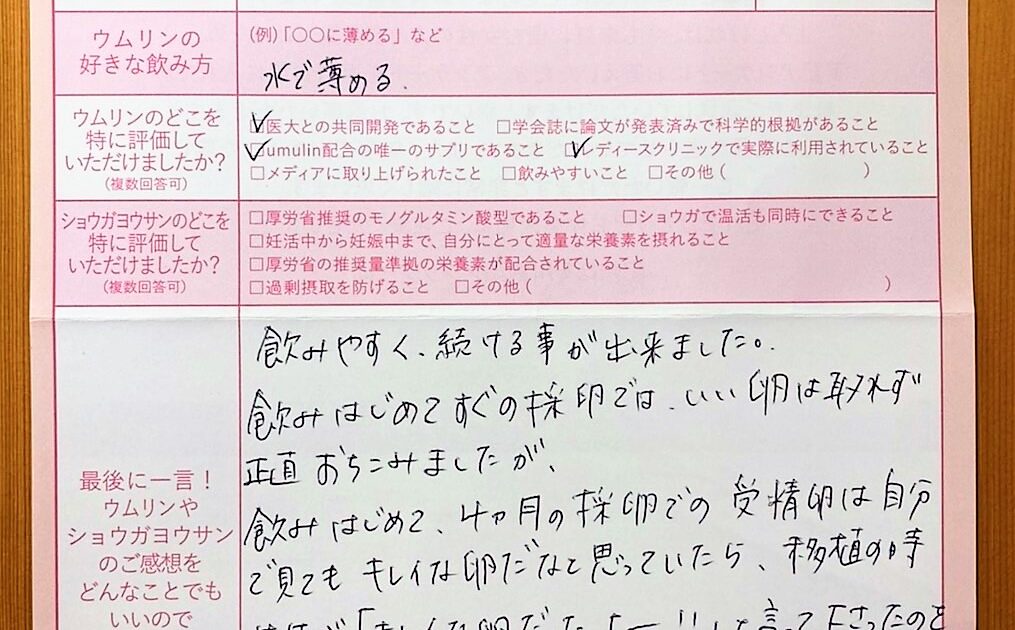 ウムリンの
好きな飲み方
(例)「〇〇に薄める」など
水で薄める.
ウムリンのどこを
特に評価して
いただけましたか?
(複数回答可)
☑医大との共同開発であること □学会誌に論文が発表済みで科学的根拠があること
☑umulin配合の唯一のサプリであること ☑レディースクリニックで実際に利用されていること
□メディアに取り上げられたこと □飲みやすいこと □その他 ( )
ショウガヨウサンのどこを
特に評価して
いただけましたか?
(複数回答可)
□厚労省推奨のモノグルタミン酸型であること □ショウガで温活も同時にできること
□妊活中から妊娠中まで、自分にとって適量な栄養素を摂れること
□厚労省の推奨量準拠の栄養素が配合されていること
□過剰摂取を防げること □その他 ( )
最後に一言!
ウムリンや
ショウガヨウサン
のご感想を
どんなことでも
いいので
飲みやすく、続ける事が出来ました。
飲みはじめてすぐの採卵では、いい卵は取れず
正直おちこみましたが、
飲みはじめて、4ヵ月の採卵での受精卵は自分
で見てもキレイな卵だなと思っていたら、移植の時
「キレイな卵だ って言って下さったのを